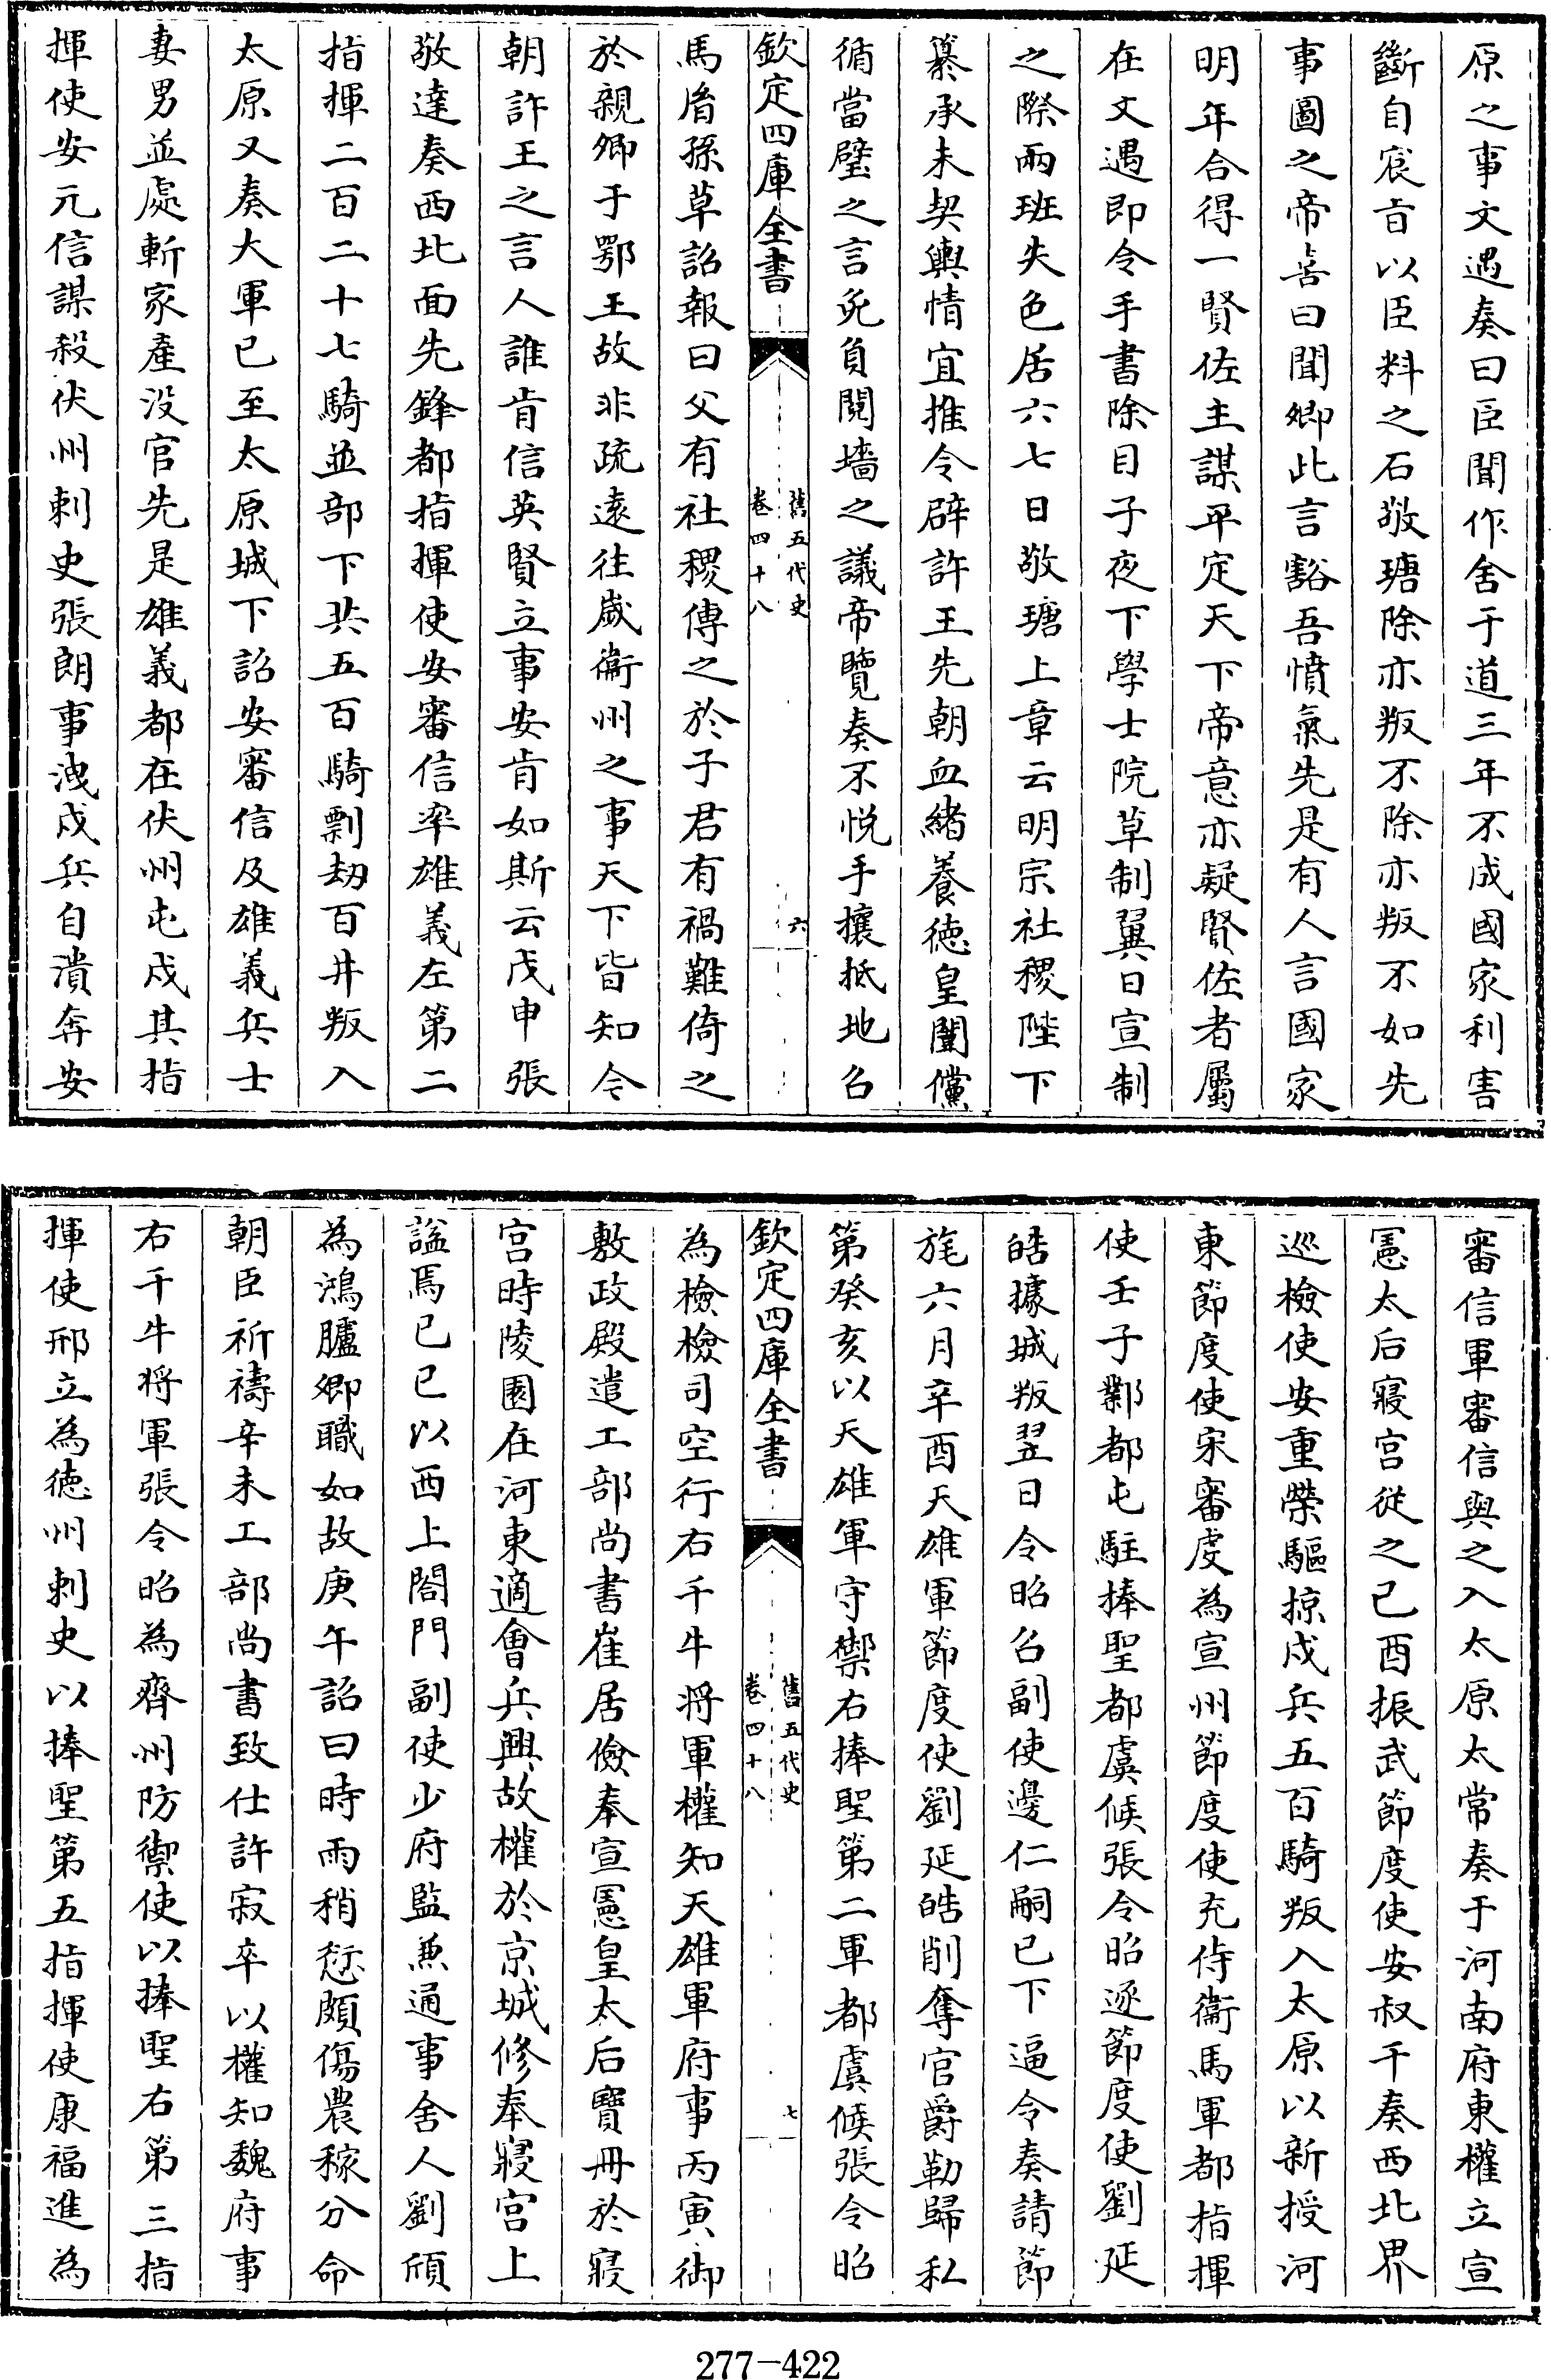 原之事文遇奏曰臣聞作舍于道三年不成國家利害
斷自宸㫖以臣料之石敬瑭除亦叛不除亦叛不如先
事圖之帝喜曰聞卿此言豁吾憤氣先是有人言國家
明年合得一賢佐主謀平定天下帝意亦疑賢佐者屬
在文遇即令手書除目子夜下學士院草制翼日宣制
之際兩班失色居六七日敬瑭上章云明宗社稷陛下
纂承未契輿情宜推令辟許王先朝血緒養徳皇闈儻
循當璧之言免負鬩墻之議帝覽奏不悦手攘抵地召
欽定四庫全書
舊五代史
卷四十八
六
馬𦙍孫草詔報曰父有社稷傳之於子君有禍難倚之
於親卿于鄂王故非疏遠往歲衞州之事天下皆知今
朝許王之言人誰肯信英賢立事安肯如斯云戊申張
敬達奏西北面先鋒都指揮使安審信率雄義左第二
指揮二百二十七騎並部下共五百騎剽劫百井叛入
太原又奏大軍已至太原城下詔安審信及雄義兵士
妻男並處斬家產没官先是雄義都在伏州屯戍其指
揮使安元信謀殺伏州刺史張朗事洩戍兵自潰奔安
審信軍審信與之入太原太常奏于河南府東權立宣
憲太后寢宫從之己酉振武節度使安叔千奏西北界
巡檢使安重榮驅掠戍兵五百騎叛入太原以新授河
東節度使宋審虔為宣州節度使充侍衞馬軍都指揮
使壬子鄴都屯駐捧聖都虞候張令昭逐節度使劉延
皓據城叛翌日令昭召副使邊仁嗣已下逼令奏請節
旄六月辛酉天雄軍節度使劉延皓削奪官爵勒歸私
第癸亥以天雄軍守禦右捧聖第二軍都虞候張令昭
欽定四庫全書
舊五代史
卷四十八
七
為檢檢司空行右千牛將軍權知天雄軍府事丙寅御
敷政殿遣工部尚書崔居儉奉宣憲皇太后寶冊於寢
宫時陵園在河東適會兵興故權於京城修奉寢宫上
謚焉己巳以西上閤門副使少府監兼通事舍人劉頎
為鴻臚卿職如故庚午詔曰時雨稍愆頗傷農稼分命
朝臣祈禱辛未工部尚書致仕許寂卒以權知魏府事
右千牛將軍張令昭為齊州防禦使以捧聖右第三指
揮使邢立為徳州刺史以捧聖第五指揮使康福進為
277-422